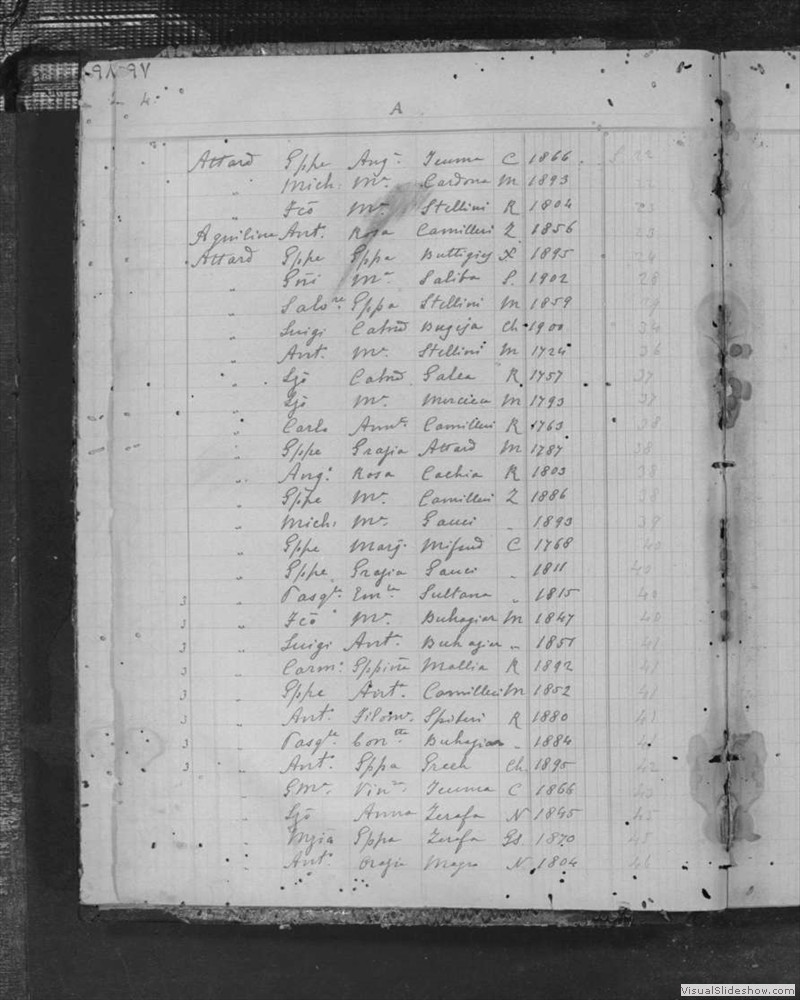 4
A
Attard Gppe Ang.ª Teuma C 1866
" Mich. M.ª Cardona M 1893
" Fcõ M.ª Stellini R 1804 23
Aquilina Ant. Rosa Camilleri Z 1856 23
Attard Gppe Gppa Buttigieg X 1895 24
" Gõi M.ª Saliba S. 1902 28
" Salv.re Gppa Stellini M 1859 29
" Luigi Catnã Bugeja Ch. 1900 34
" Ant. M.ª Stellini M 1724 36
" Gjõ Catnã Galea R 1757 37
" Gjõ M.ª Murcieca M 1793 37
" Carlo Ann.ª Camilleri R 1763 38
" Gppe Grazia Attard M 1787 38
" Ang.º Rosa Cachia R 1803 38
" Gppe M.ª Camilleri Z 1886 38
" Mich. M.ª Gauci " 1893 39
" Gppe Marg. Mifsud C 1768 40
" Gppe Grazia Gauci " 1811 40
3 " Pasq.le Em.la Sultana " 1815 40
3 " Fcõ M.ª Buhagiar M 1847 40
3 " Luigi Ant.ª Buhagiar " 1851 41
3 " Carm.º Gppina Mallia R 1892 41
3 " Gppe Ant.ª Camilleri M 1852 41
3 " Ant. Filom. Spiteri R 1880 41
3 " Pasq.le Con.tta Buhagiar " 1884 41
3 " Ant. Gppa Grech Ch. 1895 42
" Vin.ª Teuma C 1866 43
" Gjõ Anna Zerafa N 1845 45
" Gppa Zerafa Gs 1870 45
" Ant. Grazia Magro N 1804 46
VisualSlideshow.com